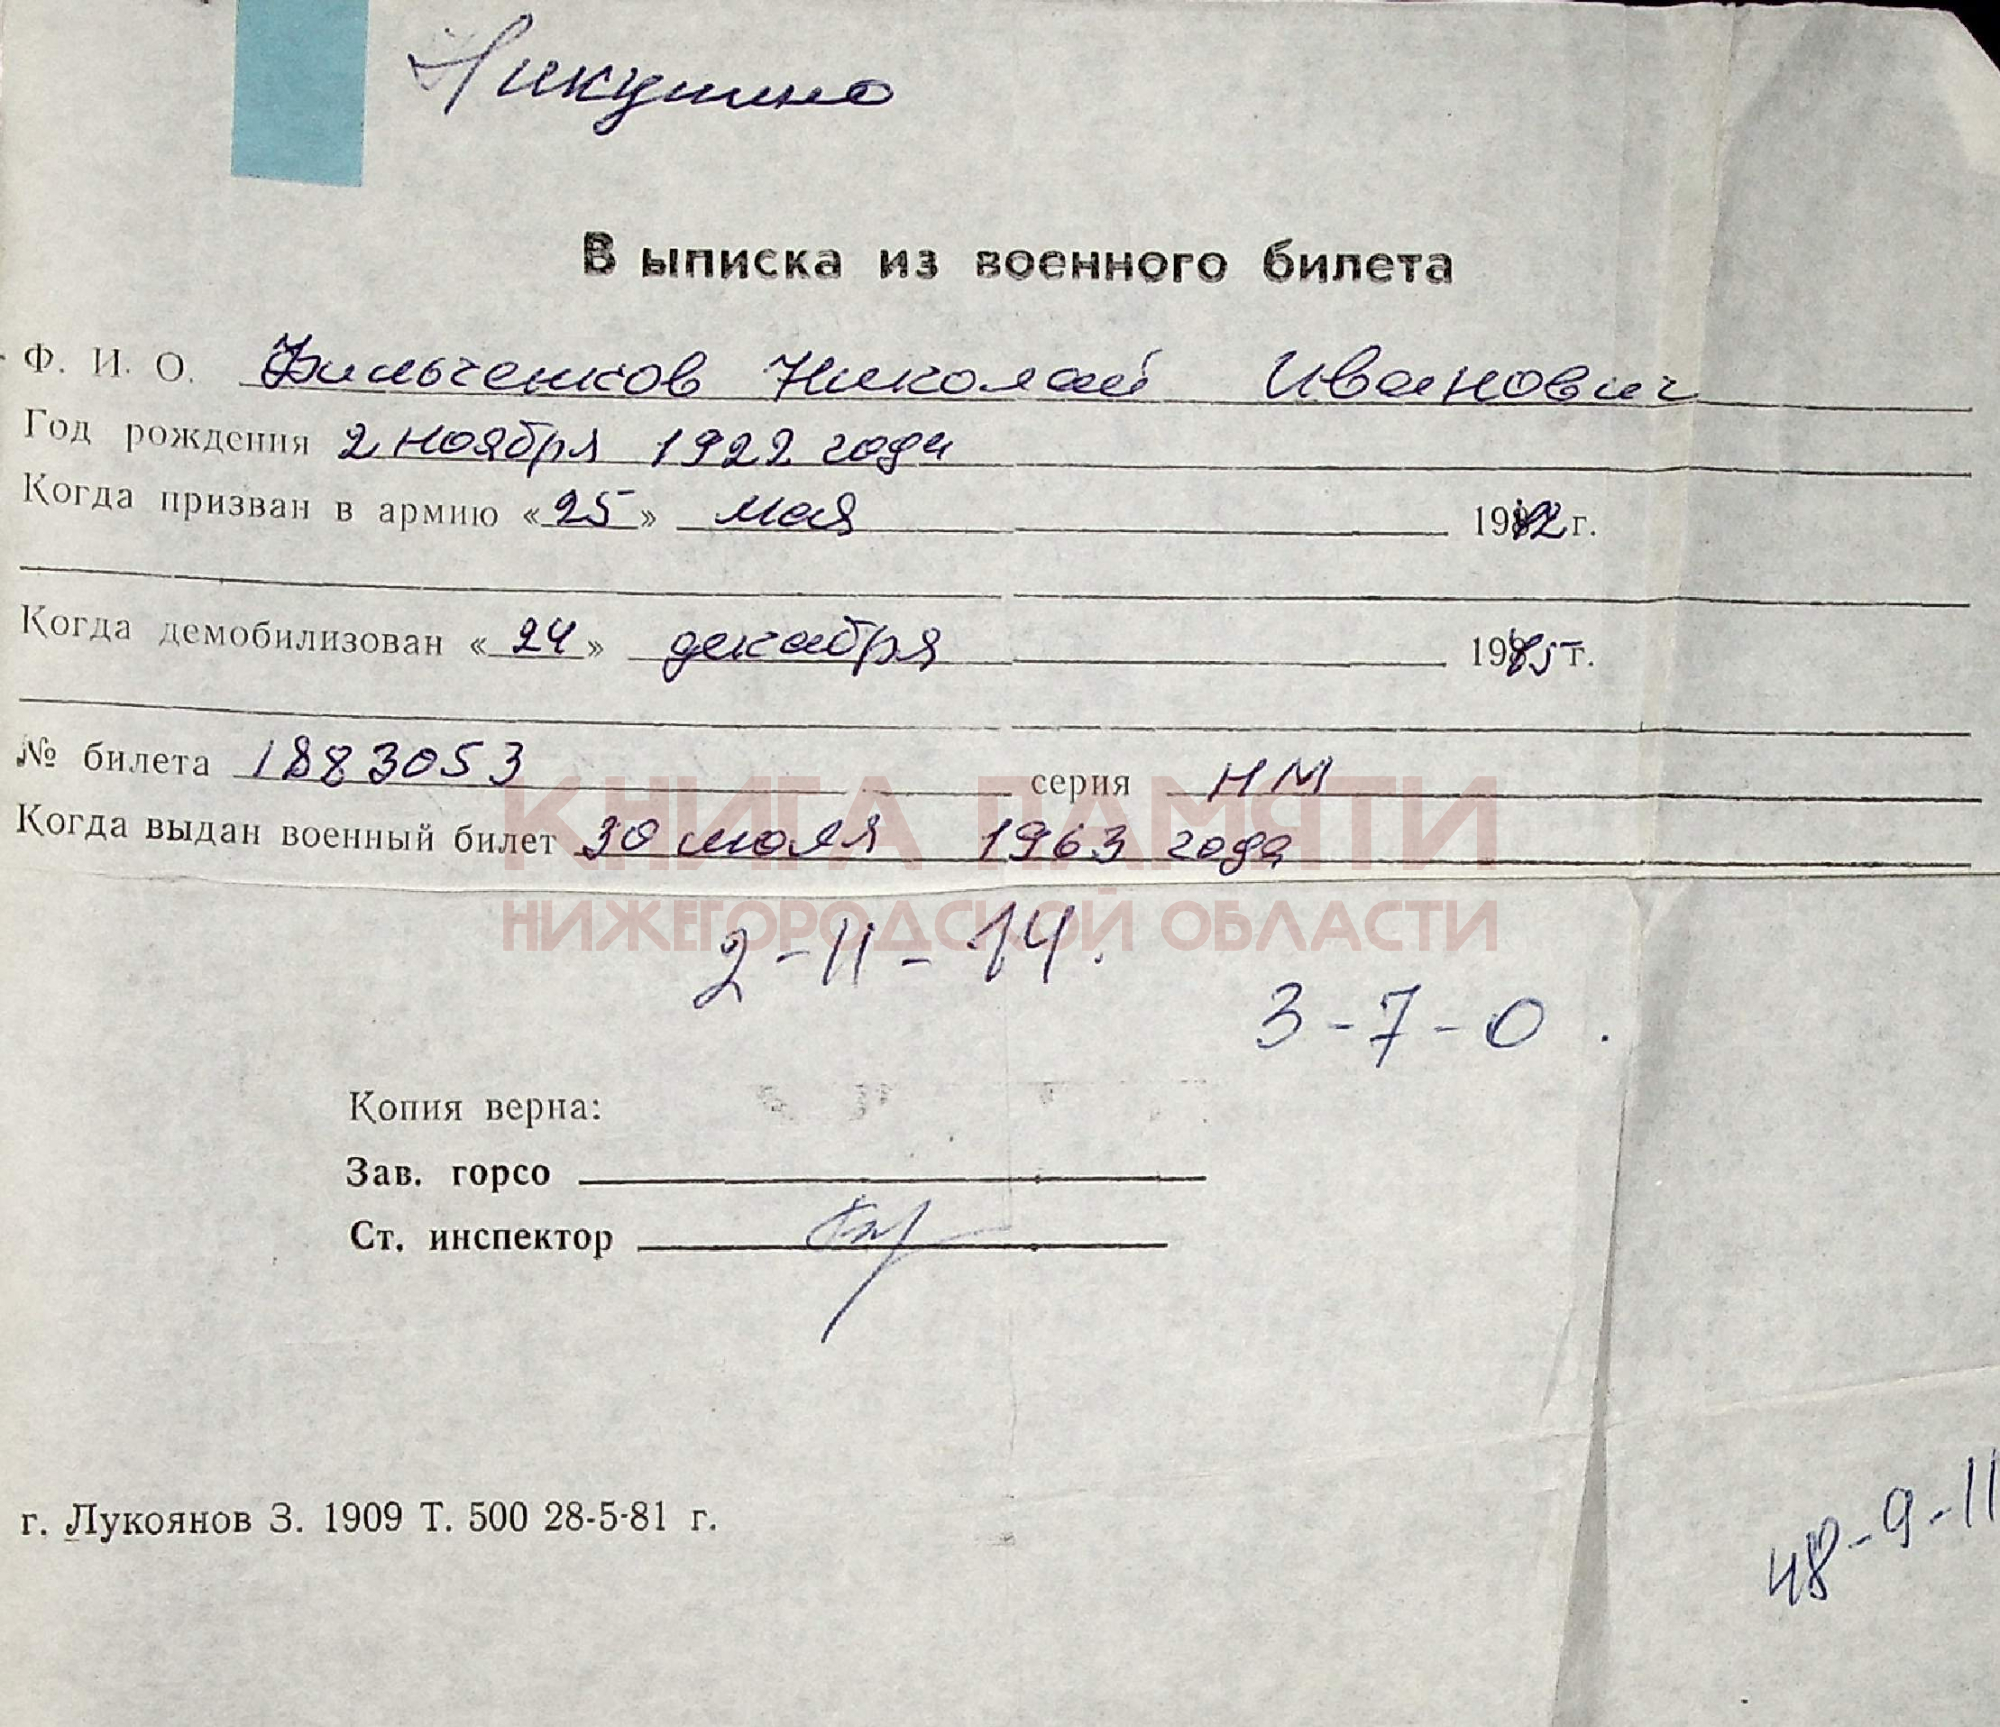 Никулино
Выписка из военного билета
Ф. И. О. Фильченков Николай Иванович
Год рождения 2 ноября 1922 года
Когда призван в армию «25» мая 1942 г.
Когда демобилизован «24» декабря 1945 г.
№ билета 1883053 серия НМ
Когда выдан военный билет 30 июля 1963 года
КНИГА ПАМЯТИ
НИЖЕГОРОДСКОЙ ОБЛАСТИ
2-11-14.
3-7-0.
Копия верна:
Зав. горсо
Ст. инспектор
г. Лукоянов З. 1909 Т. 500 28-5-81 г.
48-9-11